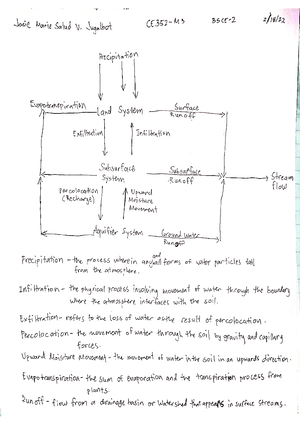 Josie Marie Salud V. Jugalbot CE352-M3 BSCE-2 2/18/22
Precipitation
Evapotranspiration Land System Surface
Runoff
Exfiltration Infiltration
Subsurface Subsurface Stream
System Runoff flow
Percolocation Upward
(Recharge) Moisture
Movement
Aquifier System Ground Water
Runoff
Precipitation - the process wherein any and all forms of water particles fall
from the atmosphere.
Infiltration - the physical process involving movement of water through the boundary
where the atmosphere interfaces with the soil.
Exfiltration - refers to the loss of water as the result of percolocation.
Percolocation - the movement of water through the soil by gravity and capillary
forces.
Upward Moisture Movement - the movement of water in the soil in an upwards direction.
Evapotranspiration - the sum of evaporation and the transpiration process from
plants.
Runoff - flow from a drainage basin or Watershed that appears in surface streams.